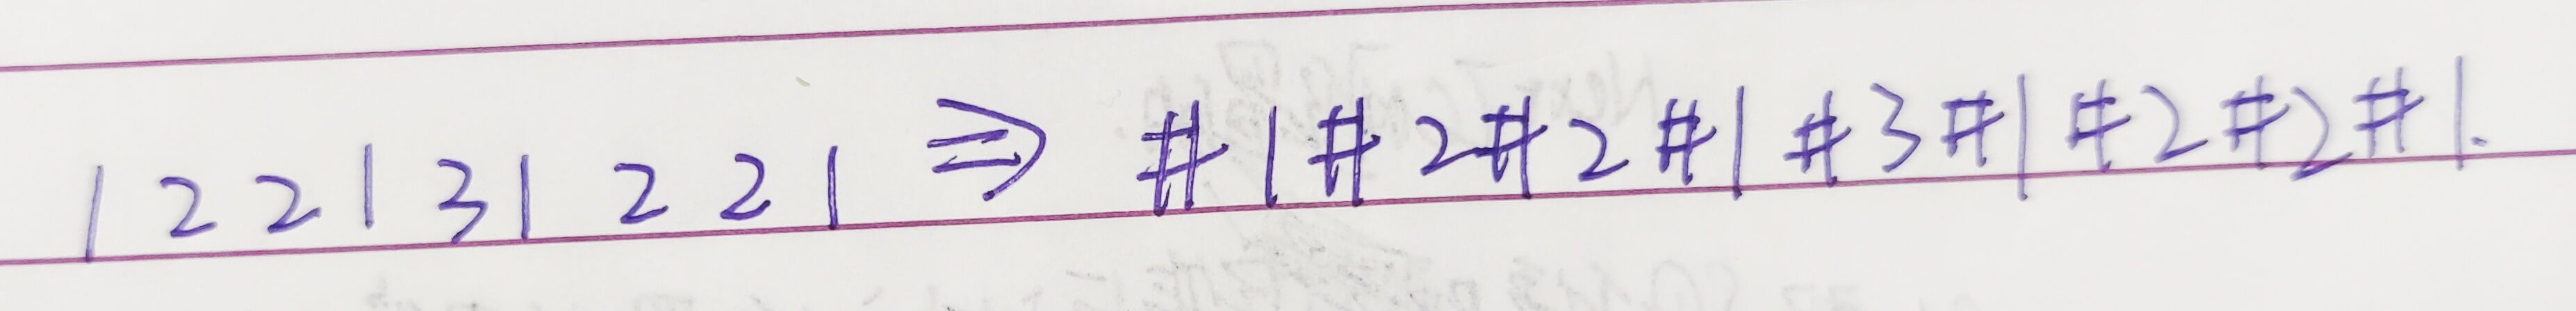 1 2 2 1 3 1 2 2 1 ⇒ # 1 # 2 # 2 # 1 # 3 # 1 # 2 # 2 # 1.